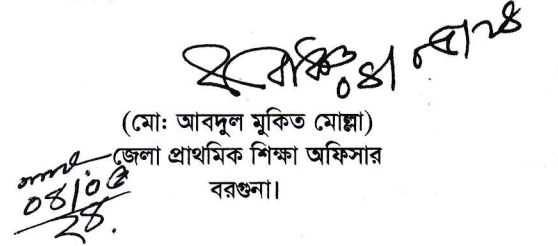 ০৪/০৫/২৪
(মো: আবদুল মুকিত মোল্লা)
জেলা প্রাথমিক শিক্ষা অফিসার
বরগুনা।
০৪/০৫
২৪.